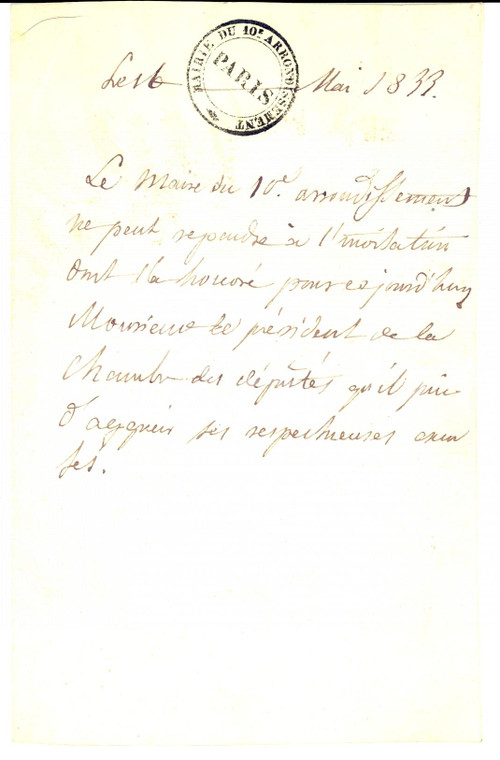 MAIRIE DU 10E ARRONDISSEMENT
PARIS
Le 16 Mai 1833.
Le Maire du 10e. arrondissement
ne peut repondre à l'invitation
dont l'a honoré pour ce jourd'huy
Monsieur le président de la
Chambre des députés qu'il prie
d'agréer ses respectueuses excu
ses.